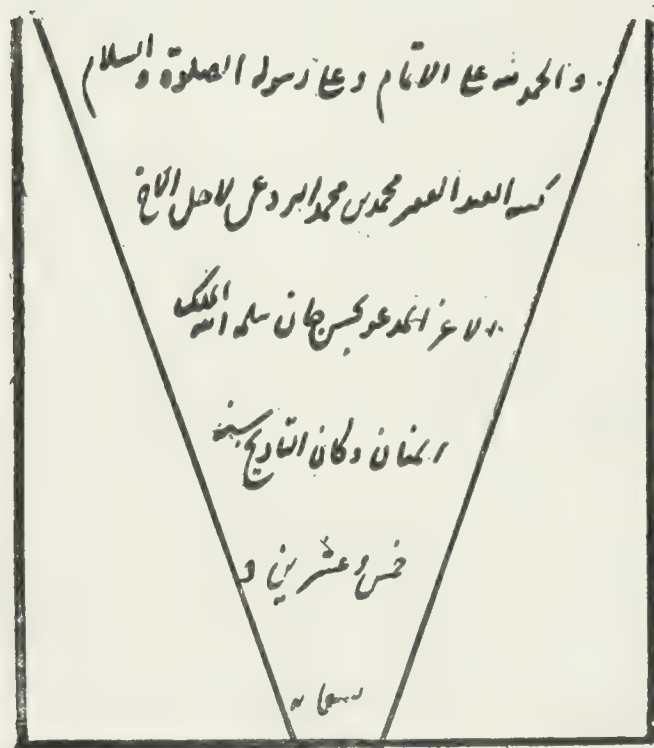 والحمد لله على الاتمام وعلى رسوله الصلوة والسلام
كتبه العبد الفقير محمد بن محمد البردعى لاجل الاخ
الاعز المدعو بحسن جان سلمه الله الملك
المنان وكان التاريخ سنة
خمس وعشرين و
تسعماية